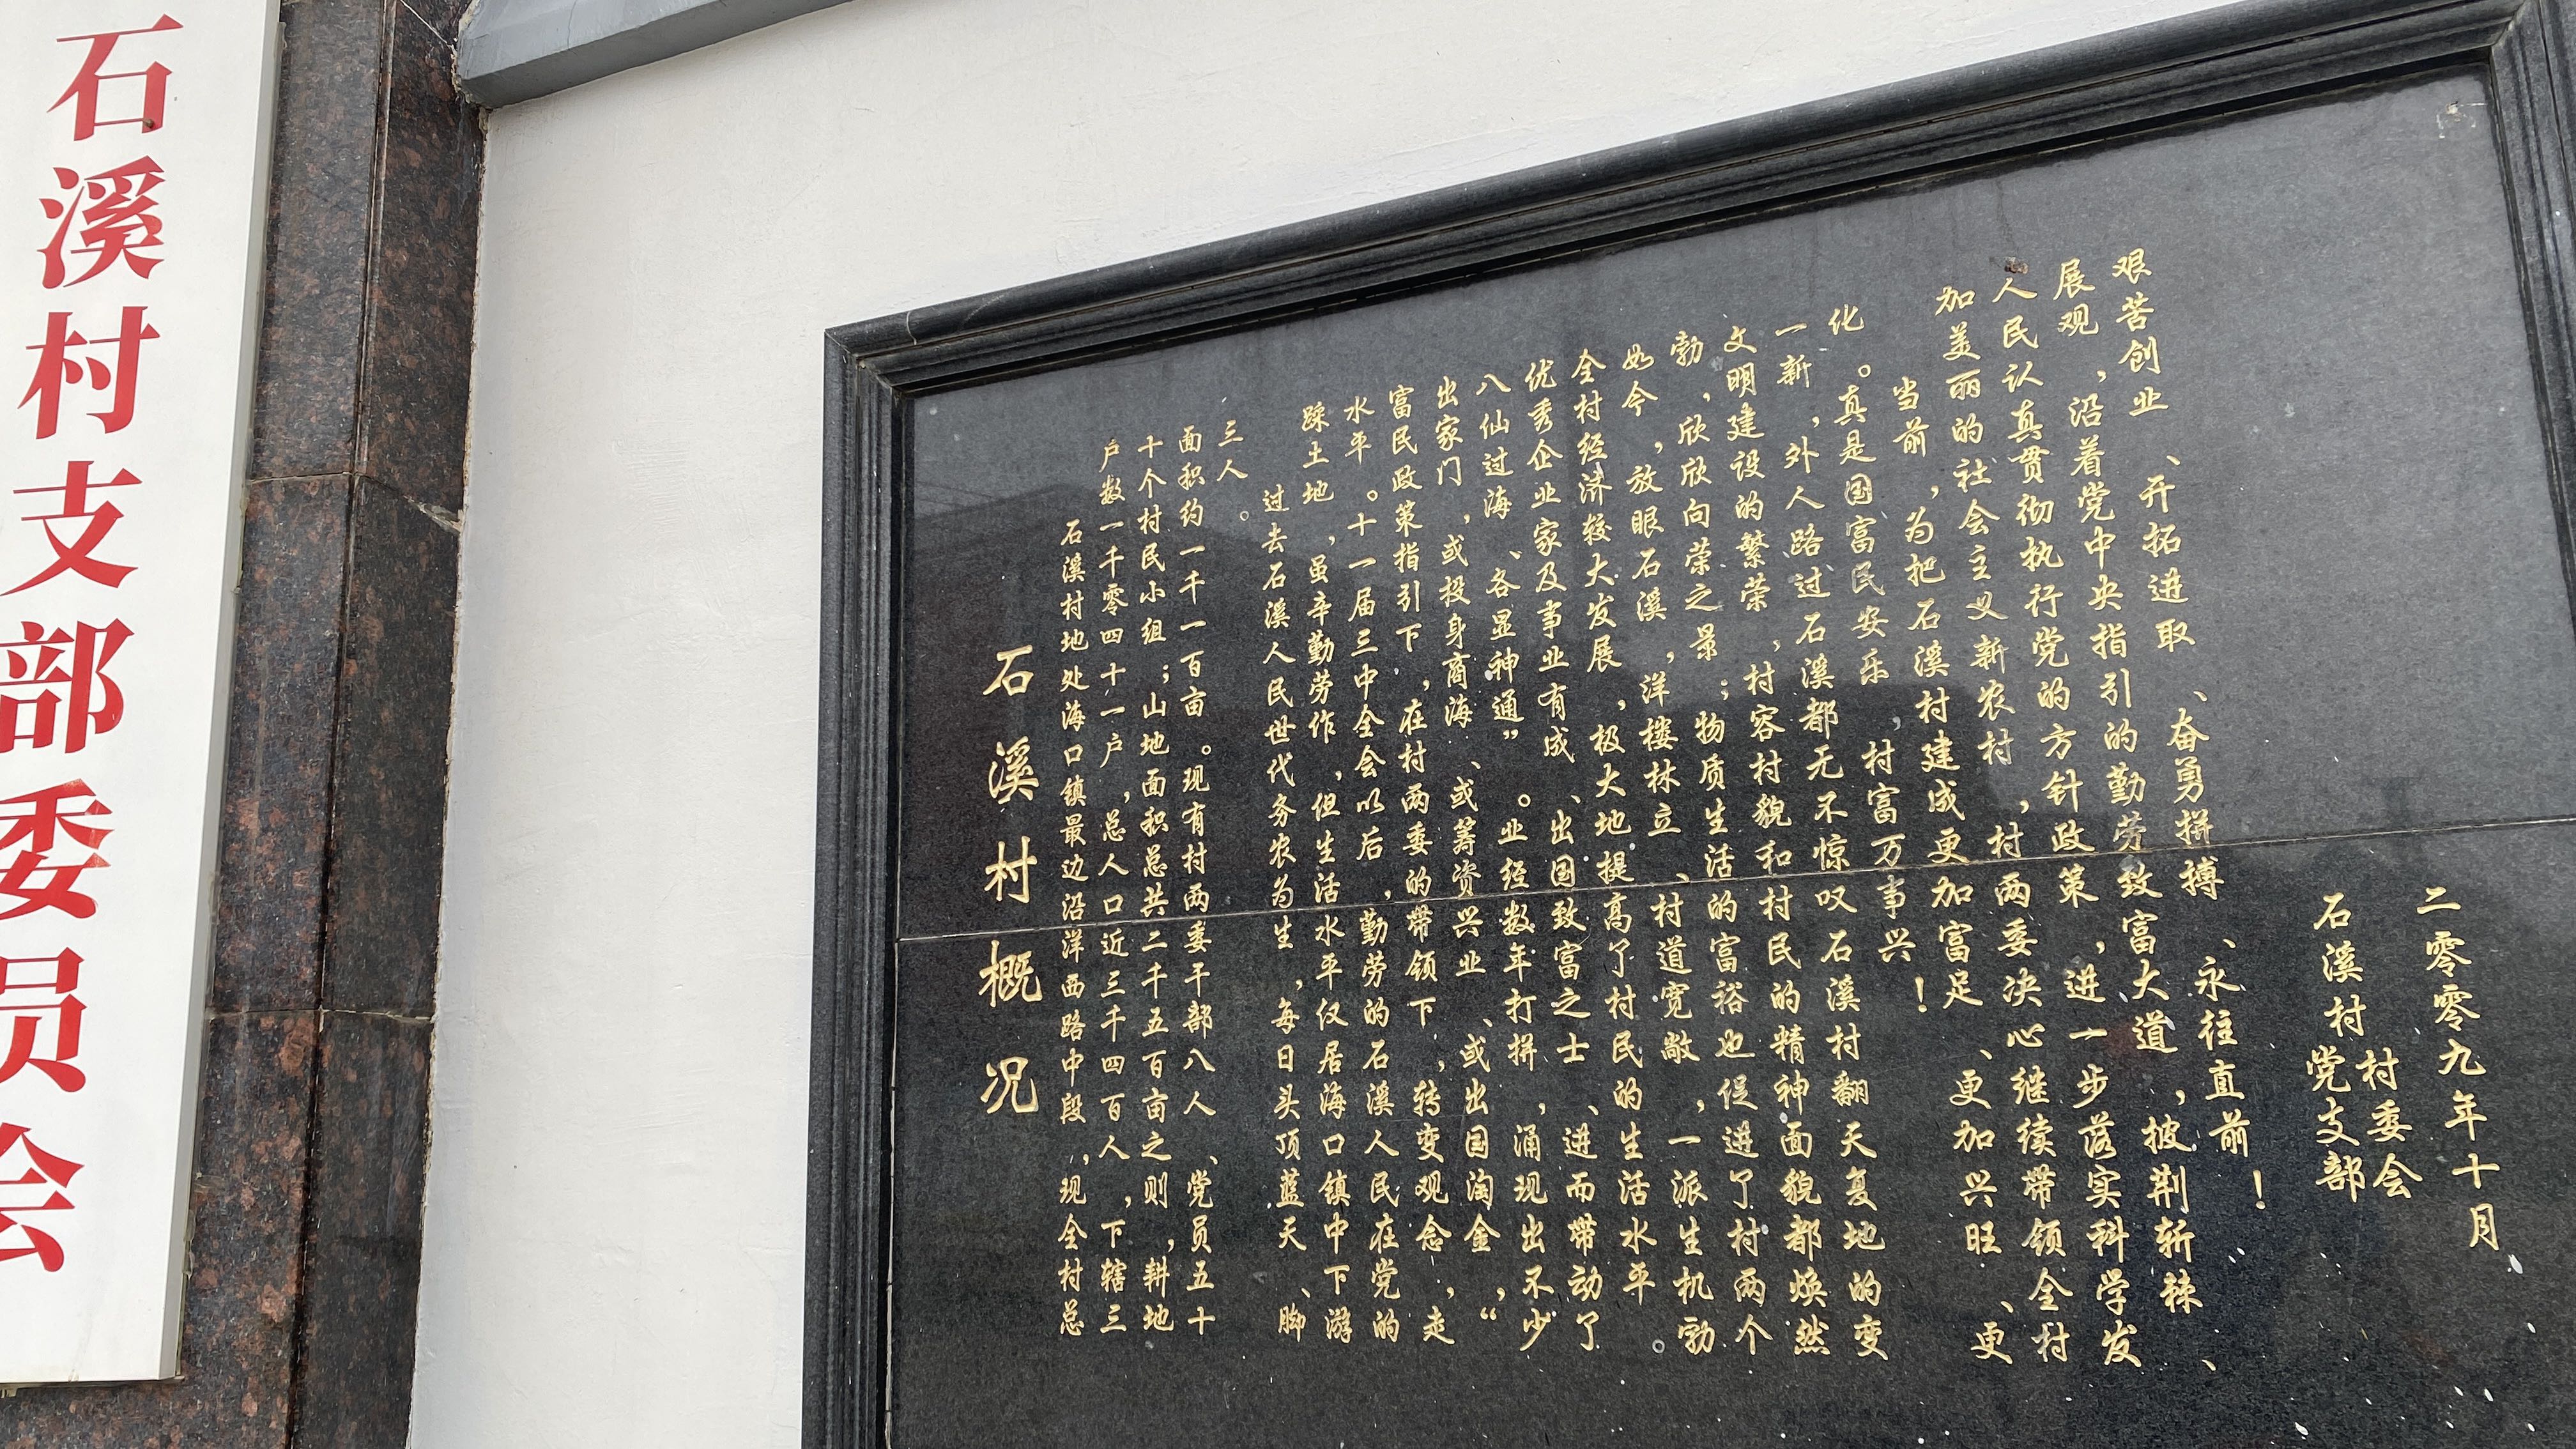 石溪村支部委员会
石溪村概况
石溪村地处海口镇最边沿洋西路中段，现全村总
户数一千零四十一户，总人口近三千四百人，下辖三
十个村民小组；山地面积总共二千五百亩之则，耕地
面积约一千一百亩。现有村两委干部八人、党员五十
三人。
过去石溪人民世代务农为生，每日头顶蓝天、脚
踩土地，虽辛勤劳作，但生活水平仅居海口镇中下游
水平。十一届三中全会以后，勤劳的石溪人民在党的
富民政策指引下，在村两委的带领下，转变观念，走
出家门，或投身商海、或筹资兴业、或出国淘金，“
八仙过海、各显神通”。业经数年打拼，涌现出不少
优秀企业家及事业有成、出国致富之士、进而带动了
全村经济较大发展，极大地提高了村民的生活水平。
如今，放眼石溪，洋楼林立、村道宽敞，一派生机勃
勃，欣欣向荣之景；物质生活的富裕也促进了村两个
文明建设的繁荣，村容村貌和村民的精神面貌都焕然
一新，外人路过石溪都无不惊叹石溪村翻天复地的变
化。真是国富民安乐，村富万事兴！
当前，为把石溪村建成更加富足、更加兴旺、更
加美丽的社会主义新农村，村两委决心继续带领全村
人民认真贯彻执行党的方针政策，进一步落实科学发
展观，沿着党中央指引的勤劳致富大道，披荆斩棘、
艰苦创业、开拓进取、奋勇拼搏、永往直前！
石溪村党支部
村委会
二零零九年十月